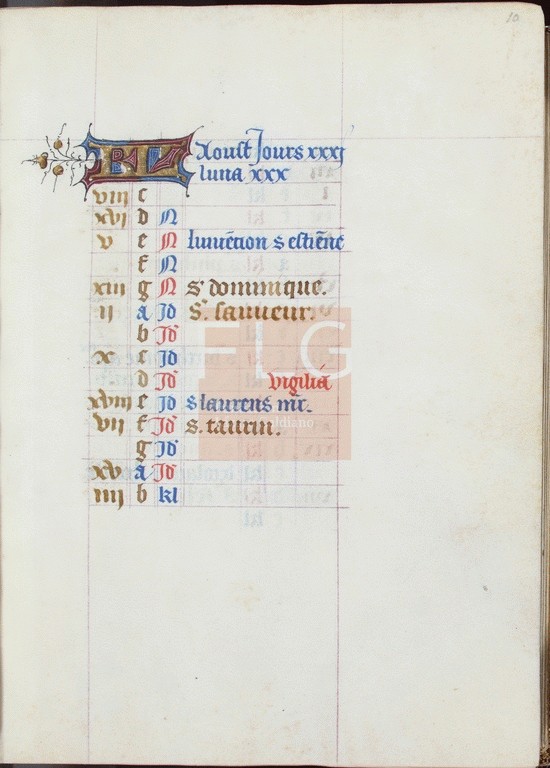 10
KL Aoust Jours xxxj
luna xxx
viij c
xvj d N
v e N Linuẽcion s estiẽne
f N
xiij g N S. dominique.
ij a Jd S. sauueur.
b Jd
x c Jd
d Jd vigilia
xviij e Jd s laurens mr.
vij f Jd S. taurin.
g Jd
xv a Jd
iiij b kl
FLG